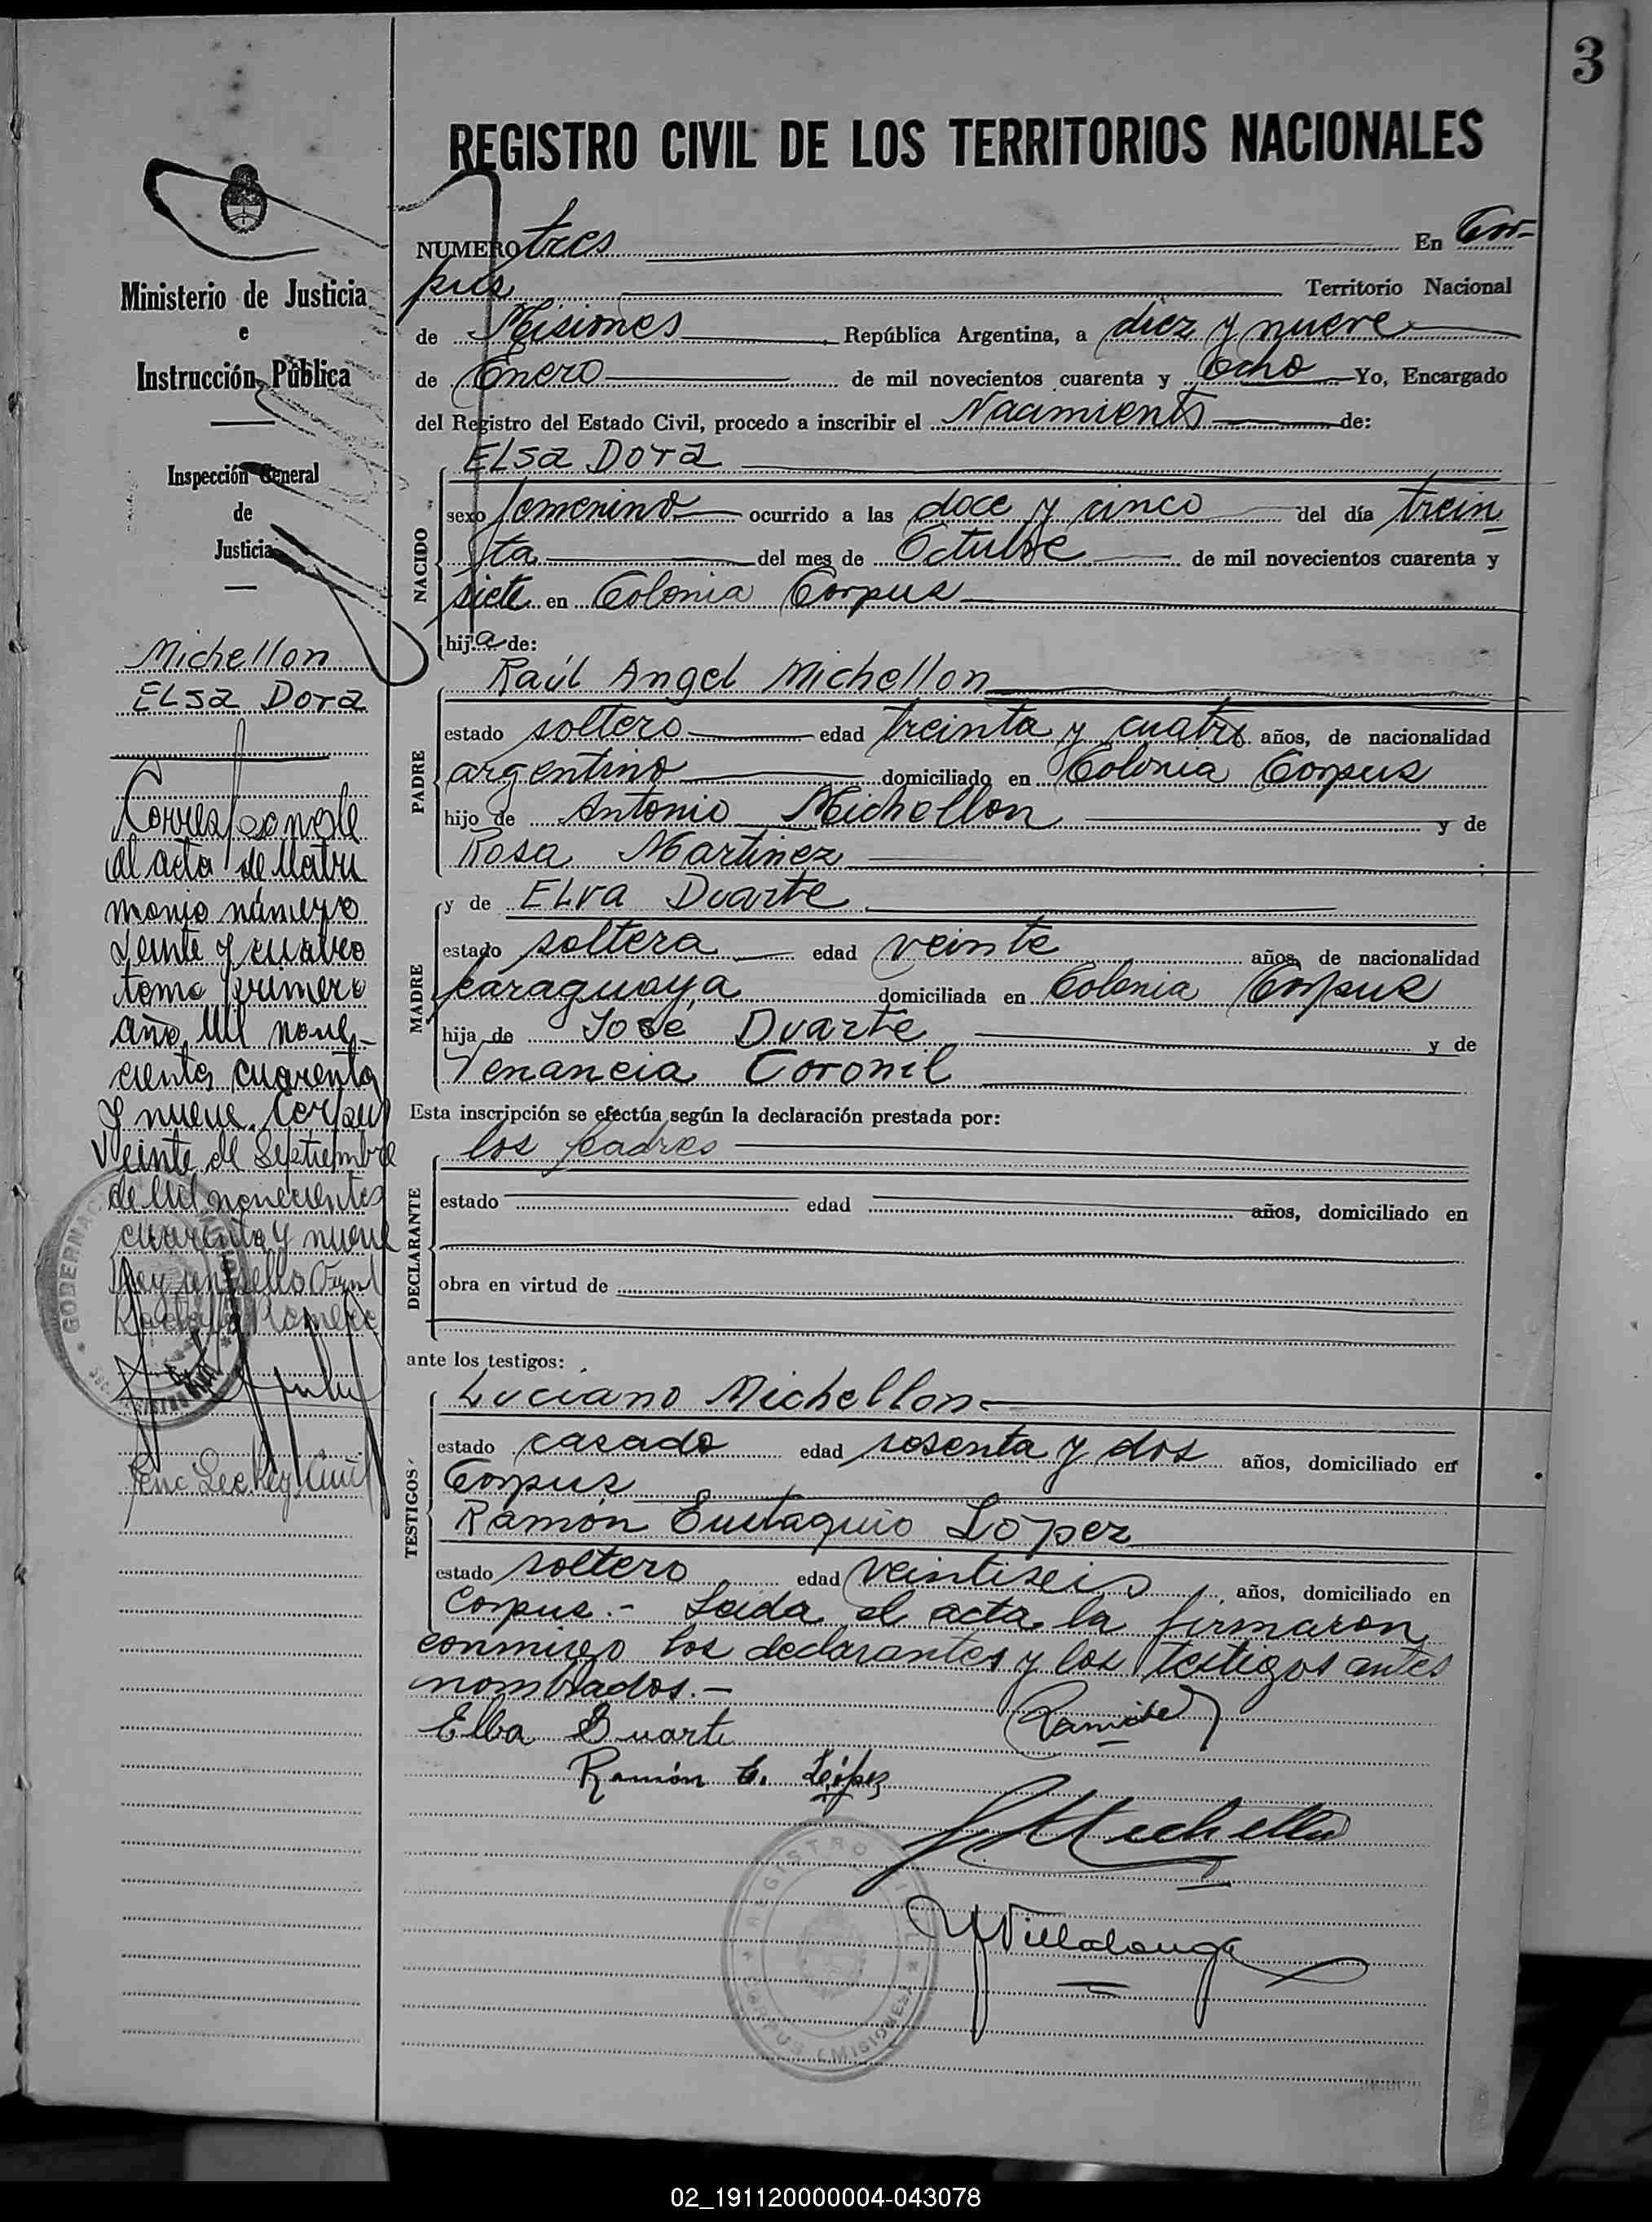 3
REGISTRO CIVIL DE LOS TERRITORIOS NACIONALES
Ministerio de Justicia
e
Instrucción Pública
Inspección General
de
Justicia
Michellon
Elsa Dora
Corresponde
al acta de Matri
monio número
veinte y cuatro
tomo primero
año Mil nove-
cientos cuarenta
y nueve. Corpus
Veinte de Septiembre
de Mil novecientos
cuarenta y nueve
Hay un sello
GOBERNAC
NUMERO tres En Cor-
pus Territorio Nacional
de Misiones República Argentina, a diez y nueve
de Enero de mil novecientos cuarenta y ocho Yo, Encargado
del Registro del Estado Civil, procedo a inscribir el Nacimiento de:
Elsa Dora
NACIDO
sexo femenino ocurrido a las doce y cinco del día trein
ta del mes de Octubre de mil novecientos cuarenta y
siete en Colonia Corpus
hija de:
Raúl Angel Michellon
PADRE
estado soltero edad treinta y cuatro años, de nacionalidad
argentino domiciliado en Colonia Corpus
hijo de Antonio Michellon y de
Rosa Martinez
y de Elva Duarte
MADRE
estado soltera edad veinte años, de nacionalidad
paraguaya domiciliada en Colonia Corpus
hija de José Duarte y de
Venancia Coronil
Esta inscripción se efectúa según la declaración prestada por:
los padres
DECLARANTE
estado edad años, domiciliado en
obra en virtud de
ante los testigos:
Luciano Michellon
TESTIGOS
estado casado edad sesenta y dos años, domiciliado en
Corpus
Ramón Eustaquio López
estado soltero edad veintiseis años, domiciliado en
Corpus.- Leida el acta la firmaron
conmigo los declarantes y los testigos antes
nombrados.-
Elba Duarte
Ramón E. López
Michellon
Villalonga
REGISTRO CIVIL
CORPUS (MISIONES)
02_191120000004-043078